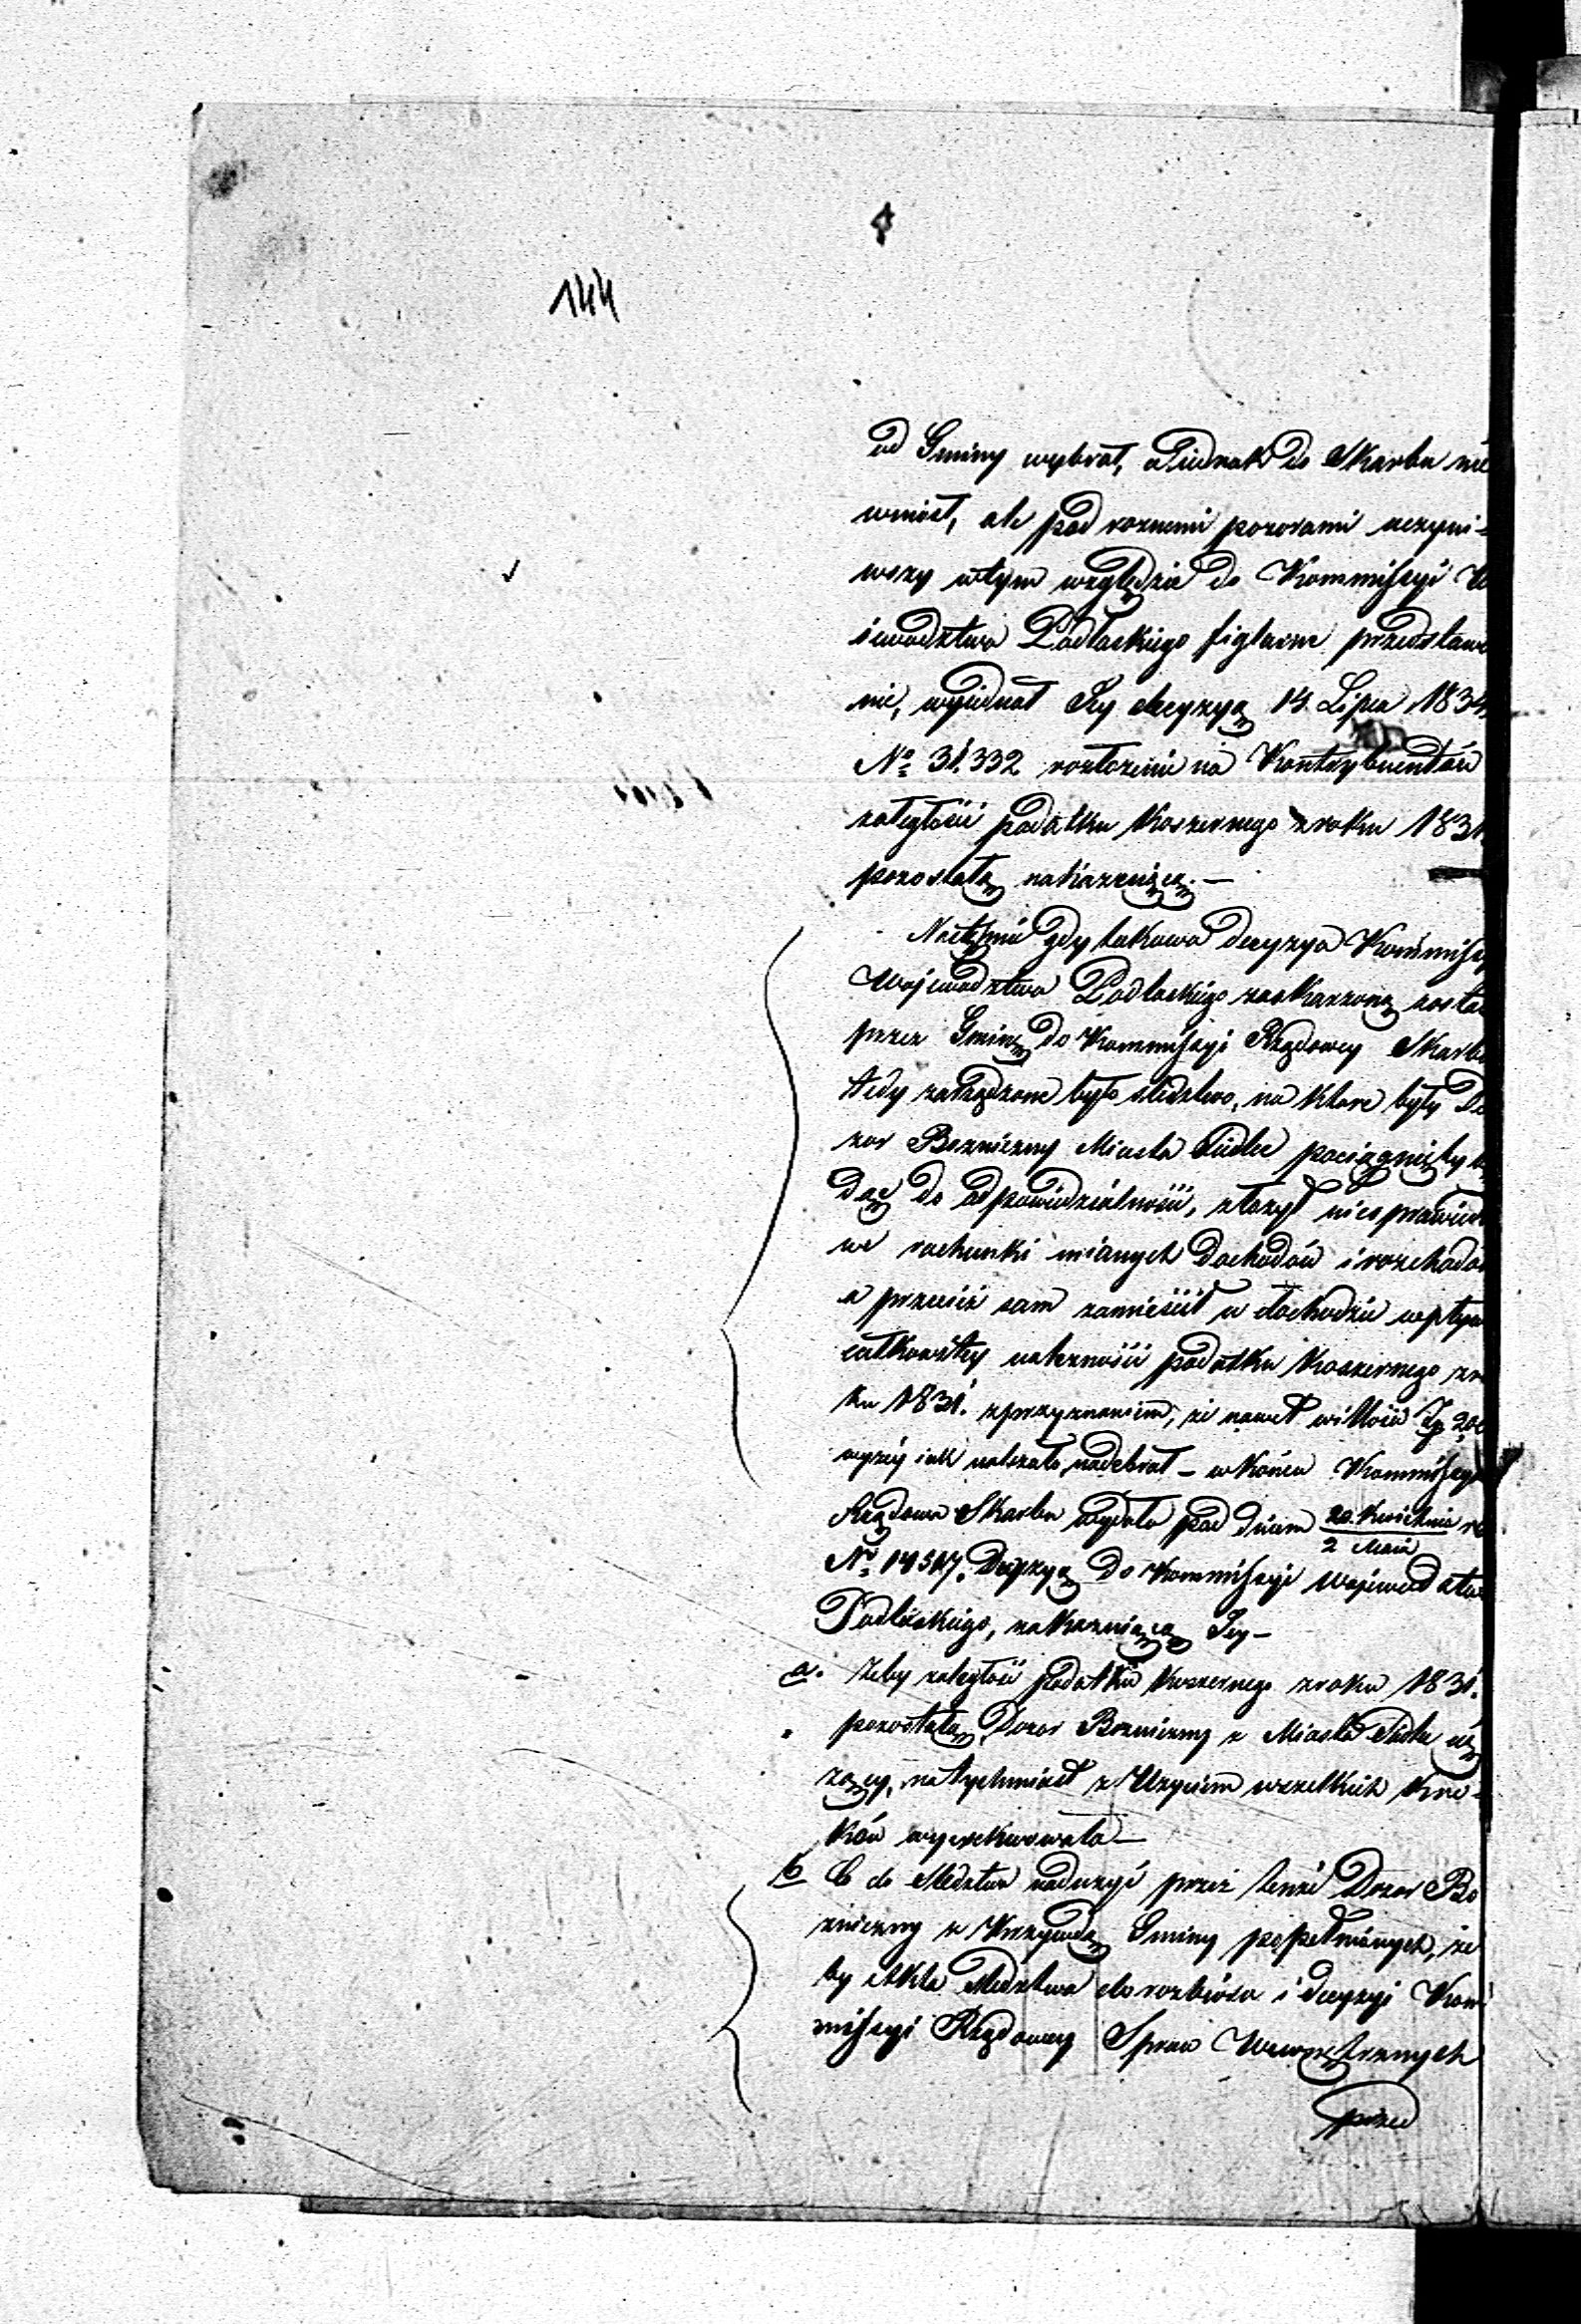 144
od Gminy wybrał, a jednak do Skarbu nie
wniosł, ale pod roznemi pozorami uczyni-
wszy w tym względzie do Kommissyi W
iewodztwa Podlaskiego figlarne przedstawi
nie, wyiednał Jey decyzyą 14 Lipca 1834
No 31.332 rozłożenie na Kontrybuentów
zaległości podatku Koszernego z roku 1831.
pozostałą nakazuiącą.—
Następnie gdy takowa decyzya Kommissy
Wojewodztwa Podlaskiego zaskarzoną zosta
przez Gminę do Kommissyi Rządowey Skarbu
tedy zarządzone było sledztwo, na ktore były Do
zor Bozniczny Miasta Siedlec pociągnięty bę
dąc do odpowiedzialności, złożył niesprawiedl
we rachunki mianych dochodów i rozchodów
a przecież sam zamieścił w dochodzie wpływ
całkowitey należności podatku Koszernego z ro
ku 1831. z przyznaniem, że nawet w ilości Zp 200
wyżéy iak należało, nadebrał – w końcu Kommissya
Rządowa Skarbu wydała pod dniem 20. Kwietnia
2 Maia
No 14517. Decyzyą do Kommissyi Wojewodztwa
Podlaskiego, nakazuiącą Jey—
a. Żeby zaległość podatku Koszernego z roku 1831.
pozostałą, Dozor Bozniczny z Miasta Siedlec
natychmiast z Użyciem wszelkich kro-
ków wyexekwowała—
b Co do sledztwa nadużyć przez tenże Dozor Bo
zniczny z Krzywdą Gminy popełnionych, że
by akta sledztwa do rozbioru i decyzyi Kom
missyi Rządowey Spraw Wewnętrznych
przed